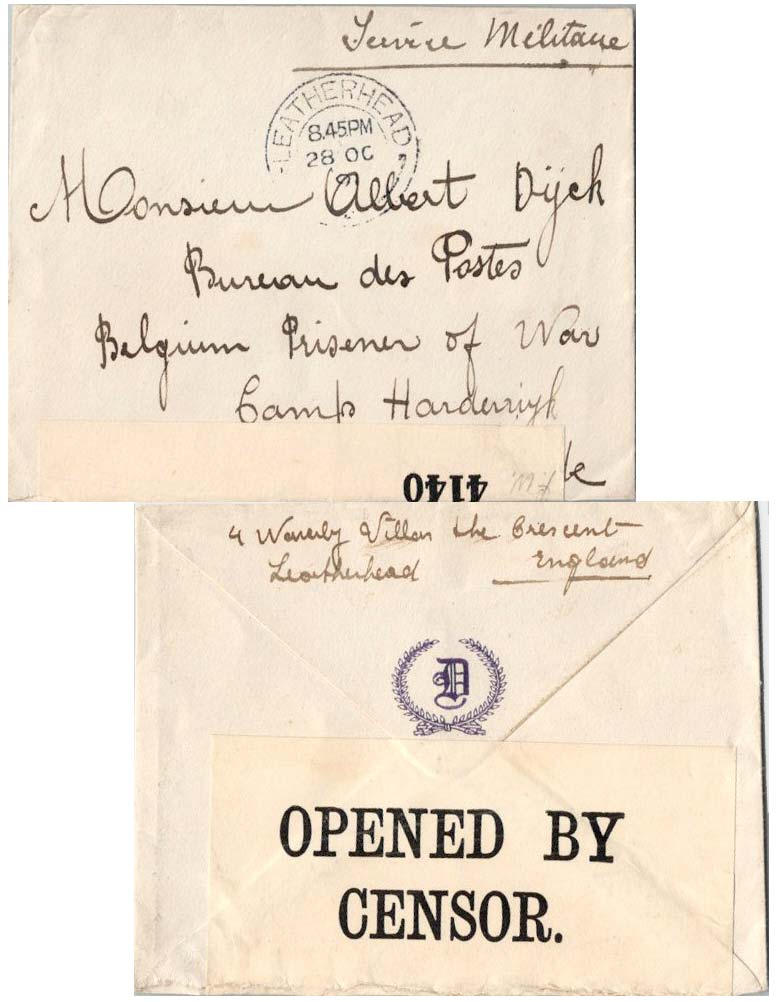 Service Militaire
LEATHERHEAD
8.45PM
28 OC
Monsieur Albert Dijck
Bureau des Postes
Belgium Prisener of War
Camp Harderwijk
4140
4 Waverly Villas the Crescent
Leatherhead England
D
OPENED BY
CENSOR.